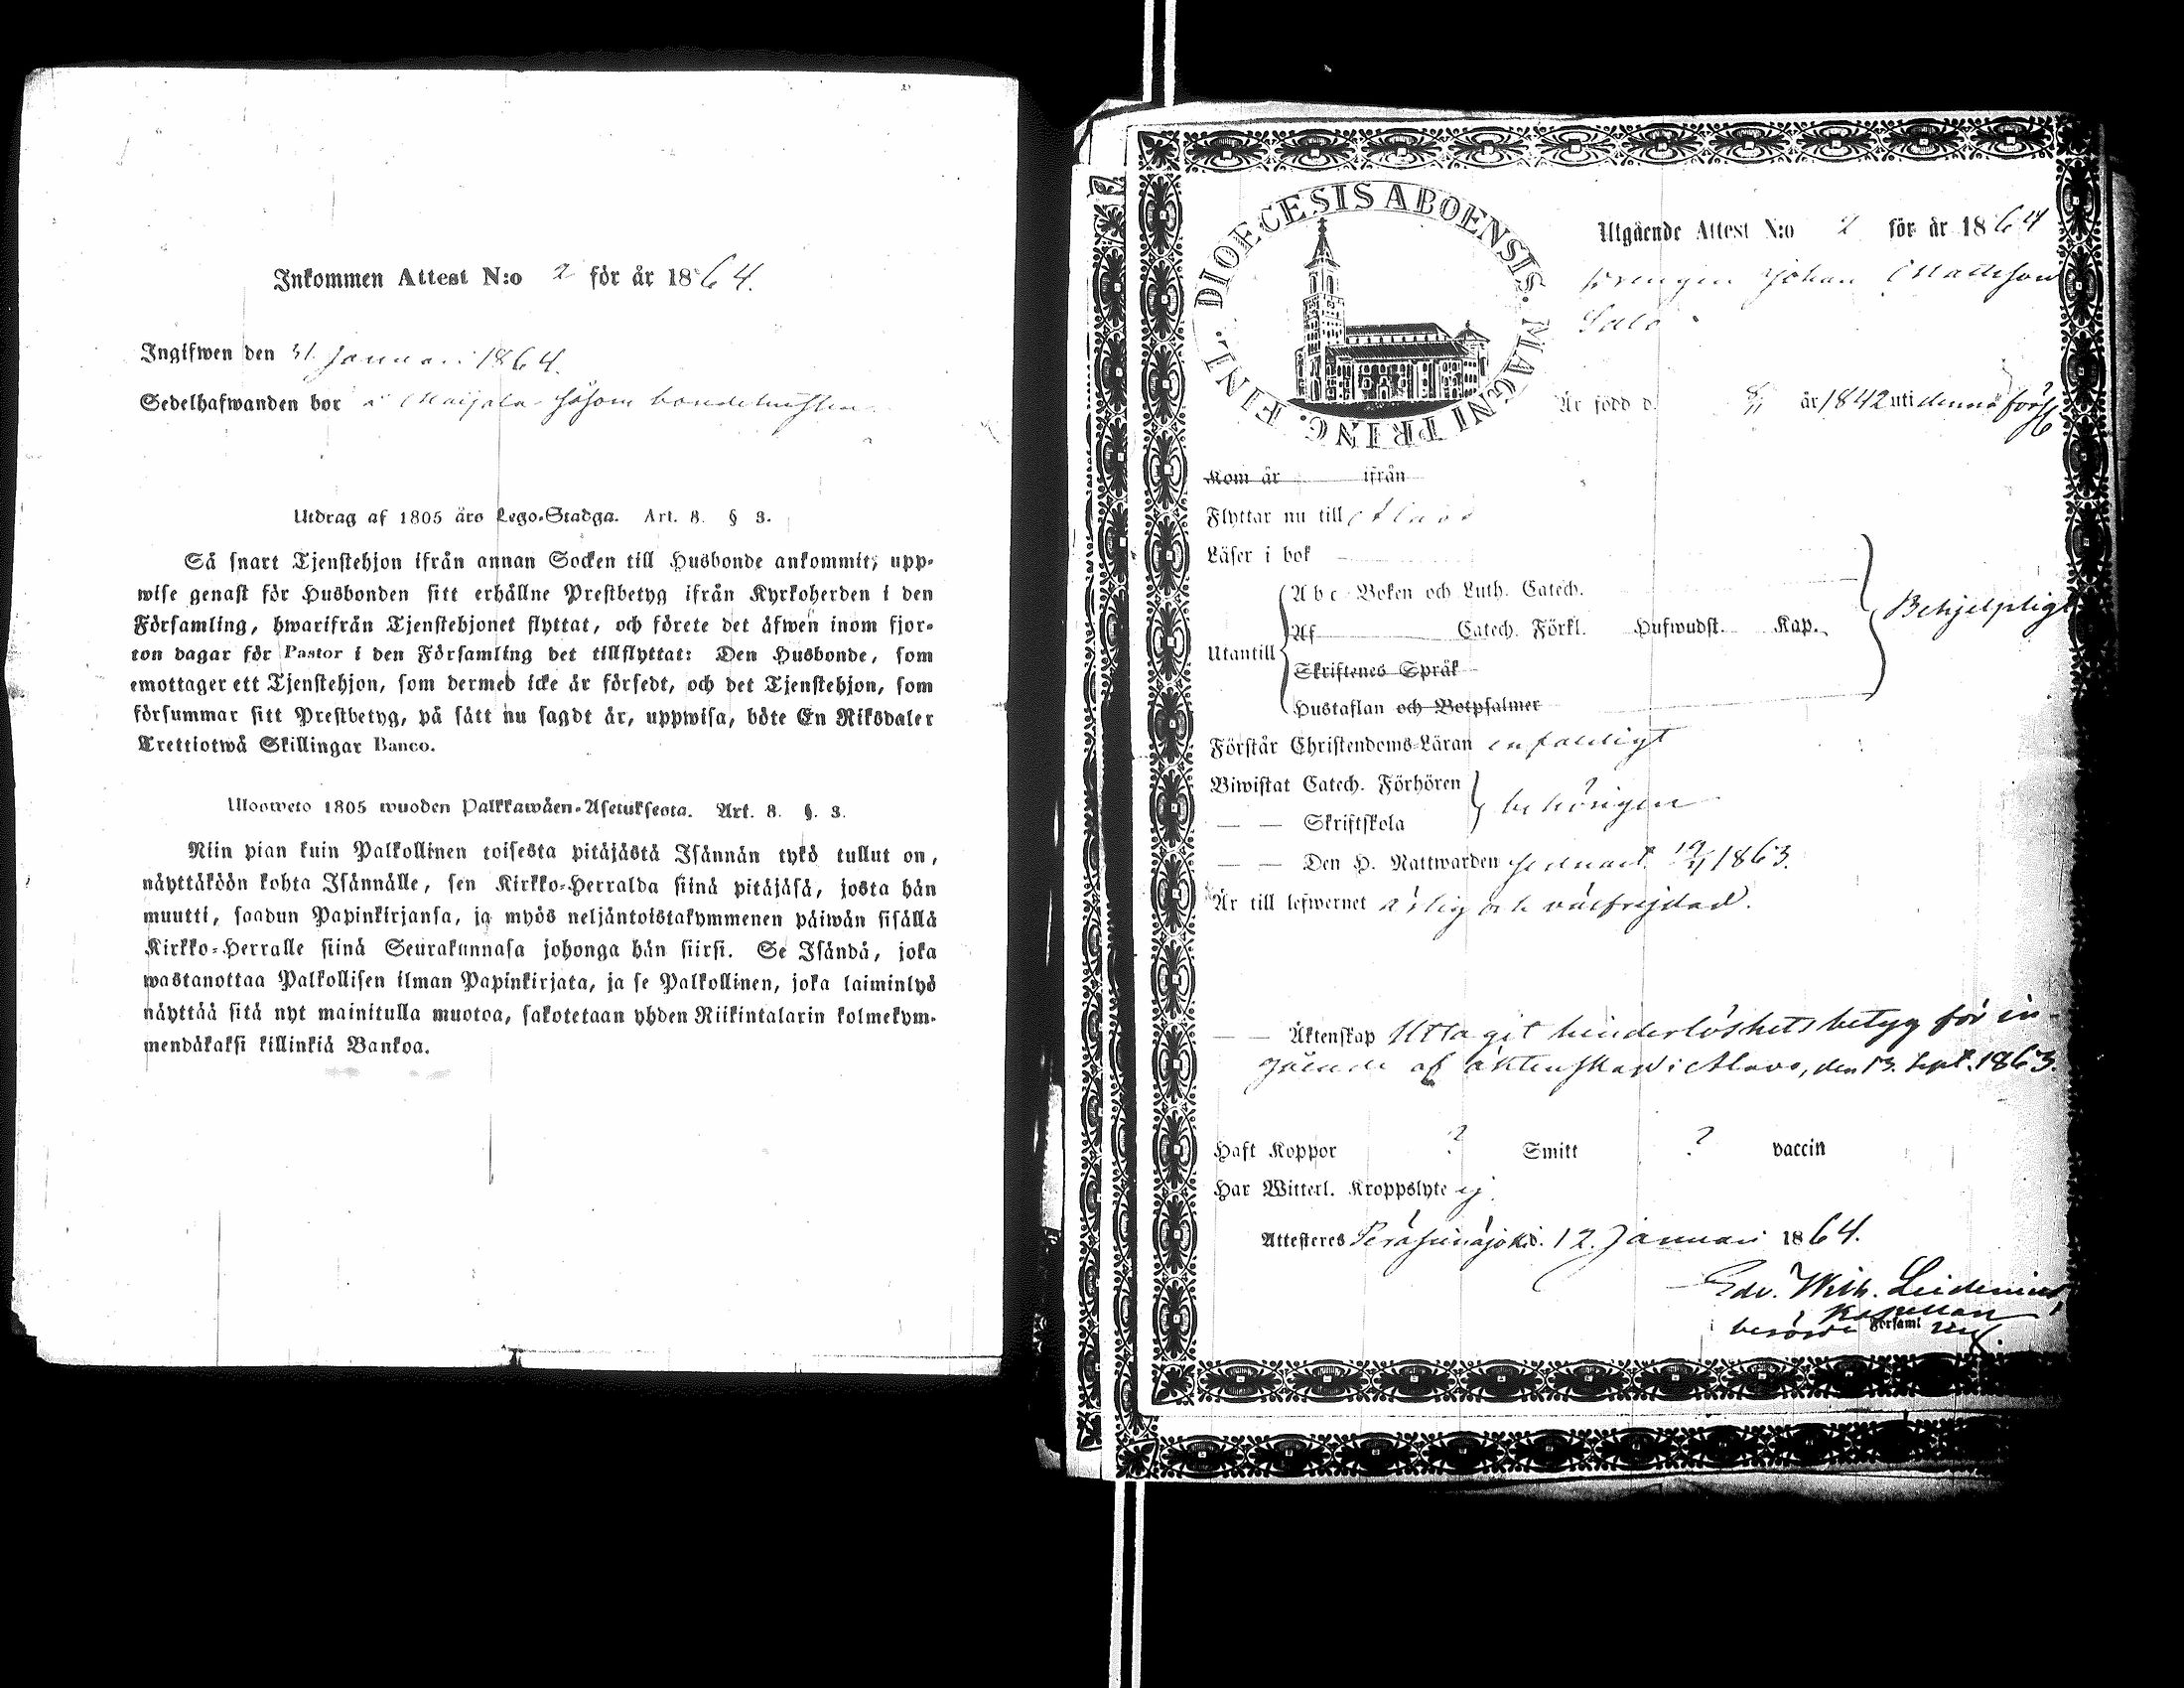 Inkommen Attest N:o 2 för år 1864.
Ingifwen den 31. Januari 1864.
Sedelhafwanden bor å Maijala såsom bonde
Utdrag af 1805 års Lego-Stadga. Art. 8. § 3.
Så snart Tjenstehjon ifrån annan Socken till Husbonde ankommit, upp-
wise genast för Husbonden sitt erhållne Prestbetyg ifrån Kyrkoherden i den
Församling, hwarifrån Tjenstehjonet flyttat, och förete det äfwen inom fjor-
ton dagar för Pastor i den Församling det tillflyttat: Den Husbonde, som
emottager ett Tjenstehjon, som dermed icke är försedt, och det Tjenstehjon, som
försummar sitt Prestbetyg, på sätt nu sagdt är, uppwisa, böte En Riksdaler
Trettiotwå Skillingar Banco.
Ulosweto 1805 wuoden Palkkawäen-Asetuksesta. Art. 8. §. 3.
Niin pian kuin Palkollinen toisesta pitäjästä Isännän tykö tullut on,
näyttäköön kohta Isännälle, sen Kirkko-Herralda siinä pitäjäsä, josta hän
muutti, saadun Papinkirjansa, ja myös neljäntoistakymmenen päiwän sisällä
Kirkko-Herralle siinä Seurakunnasa johonga hän siirsi. Se Isändä, joka
wastanottaa Palkollisen ilman Papinkirjata, ja se Palkollinen, joka laiminlyö
näyttää sitä nyt mainitulla muotoa, sakotetaan yhden Riikintalarin kolmekym-
mendäkaksi killinkiä Bankoa.
DIOECESIS ABOENSIS. MAGNI PRINC. FINL.
Utgående Attest N:o 2 för år 1864
Drengen Johan Mattsson
Salo
Är född d. 8/11 år 1842 uti denna förs:g
Kom år ifrån
Flyttar nu till Alavo
Läser i bok
Abc-Boken och Luth. Catech.
Af Catech. Förkl. Hufwudst. Kap.
Behjelpligt
Utantill
Skriftenes Språk
Hustaflan och Botpsalmer
Förstår Christendoms-Läran enfaldigt
Biwistat Catech. Förhören
behörigen
— — Skriftskola
— — Den H. Nattwarden senast 1863.
Är till lefwernet ärlig och välfrejdad.
— — Äktenskap Uttagit hinderlöshetsbetyg för in-
gående af äktenskap i Alavo, den 13. Sept. 1863.
Haft Koppor ? Smitt ? vaccin
Har Witterl. Kroppslyte ej
Attesteres Peräseinäjoki d. 12. Januari 1864.
Edv. Wilh. Leidenius,
Kapellan i
berörde Församl